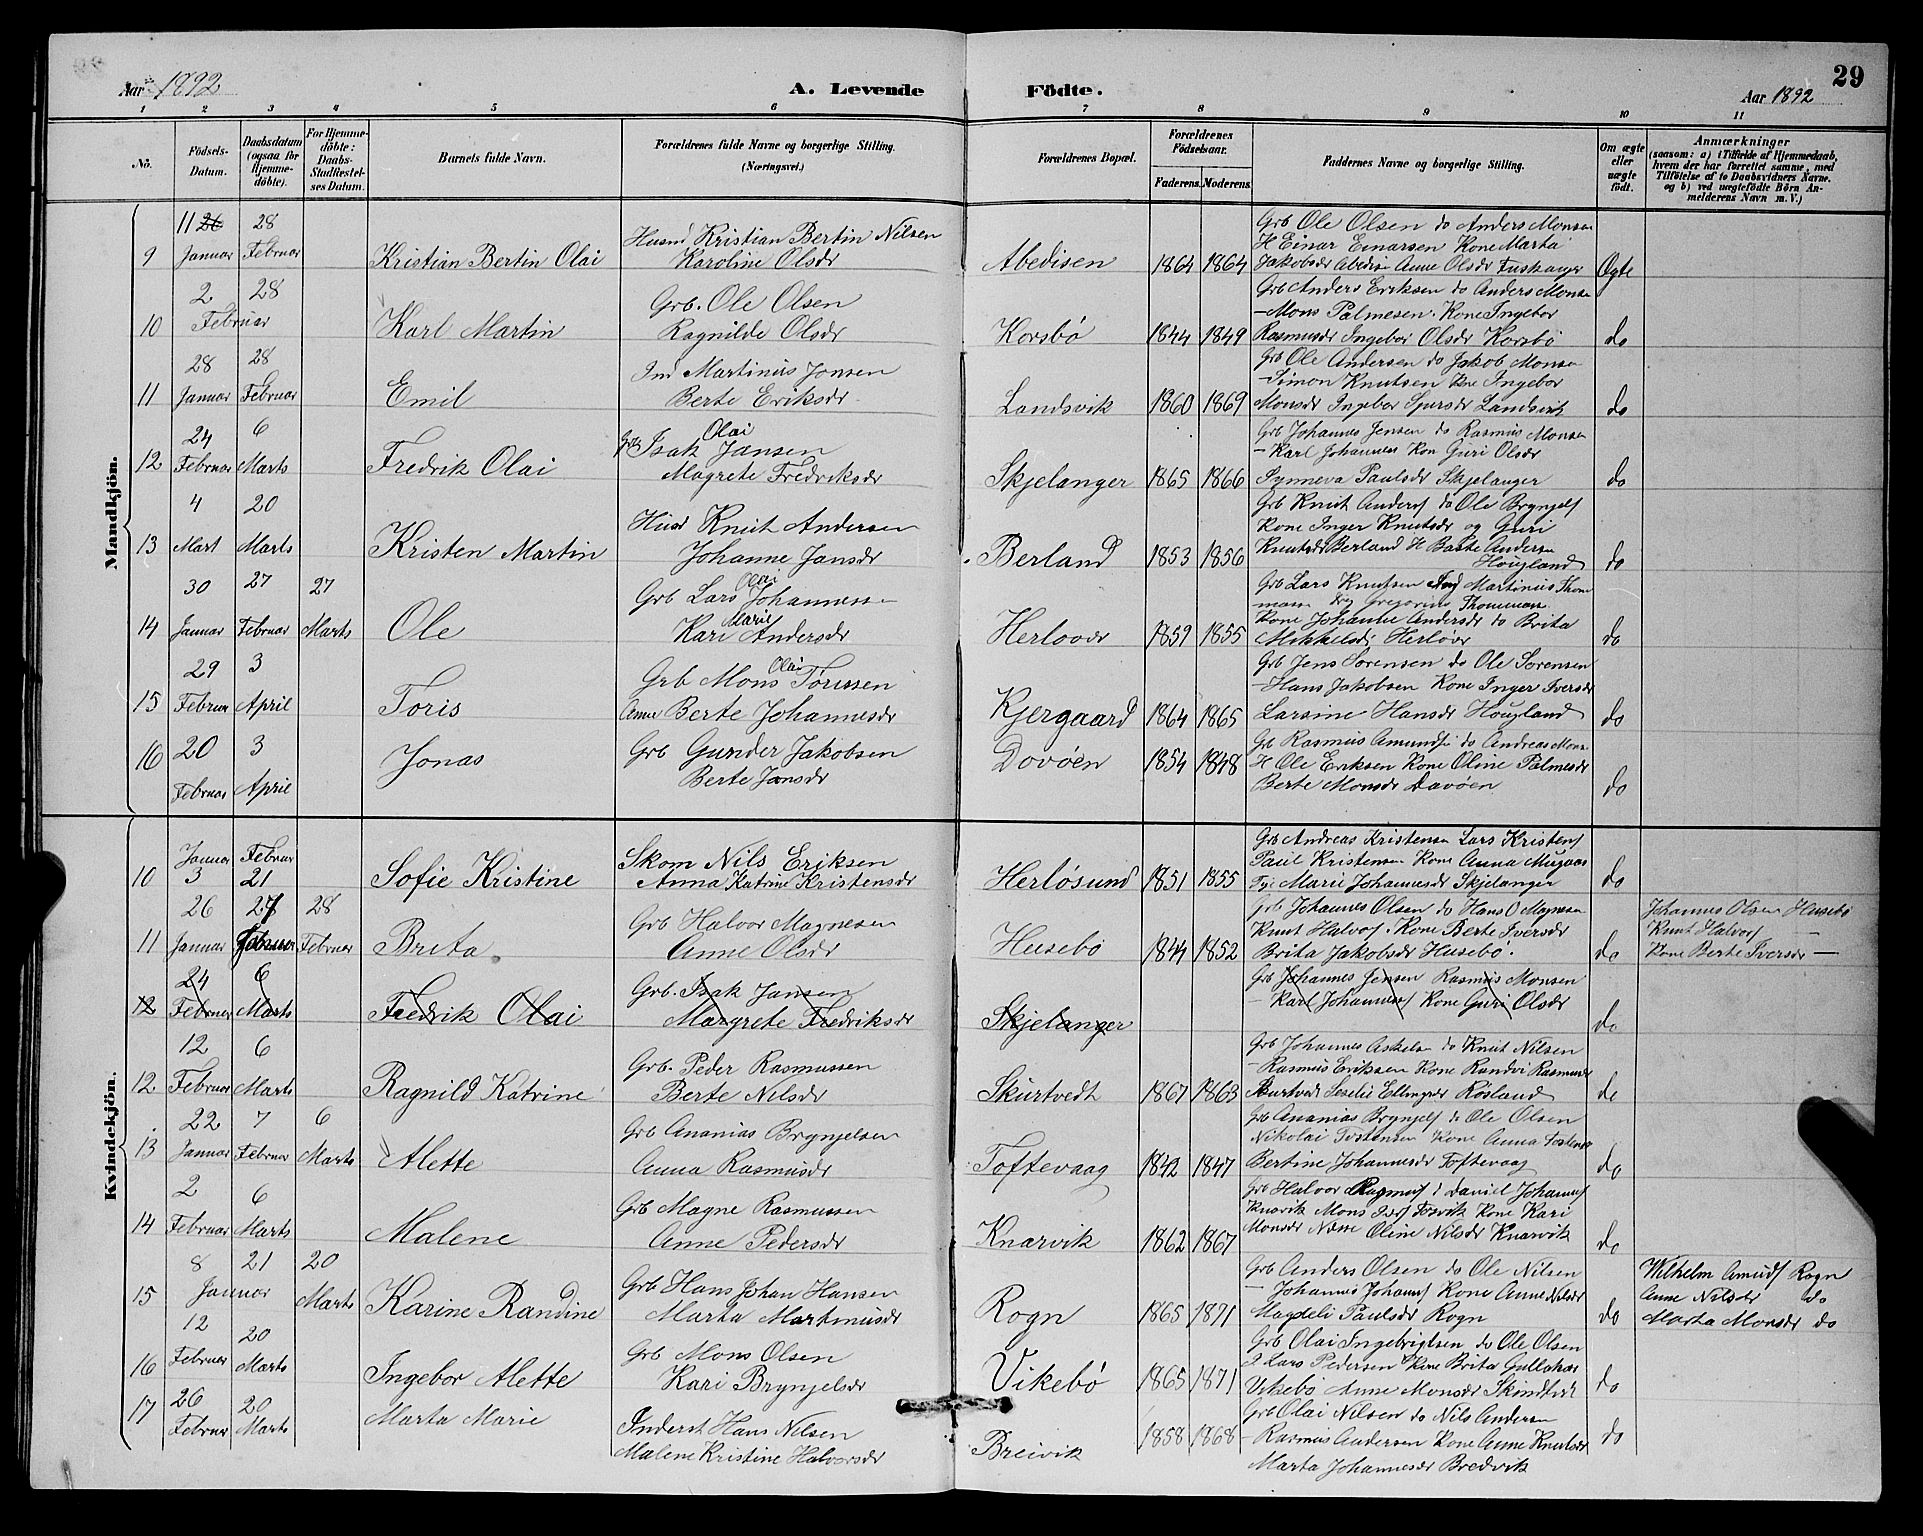 29
Aar 1892
A. Levende Födte.
Aar 1892
1 2 3 4 5 6 7 8 9 10 11
No.
Födsels-Datum.
Daabsdatum (ogsaa for Hjemme-döbte).
For Hjemme-döbte: Daabs-Stadfæstel-ses Datum.
Barnets fulde Navn.
Forældrenes fulde Navne og borgerlige Stilling. (Næringsvei.)
Forældrenes Bopæl.
Forældrenes Födselsaar.
Faderens. Moderens.
Faddernes Navne og borgerlige Stilling.
Om ægte eller uægte födt.
Anmærkninger
(saasom: a) i Tilfælde af Hjemmedaab, hvem der har forrettet samme, med Tilföielse af to Daabsvidners Navne. og b) ved uægtefödte Börn An-melderens Navn m. V.)
Mandkjön.
9 11 26 Januar 28 Februar Kristian Bertin Olai
Husmd Kristian Bertin Nilsen
Karoline Olsdr
Abedisen 1864 1864
Grb Ole Olsen do Anders Monsen
H Einar Einarsen Kone Marta
Jakobsdr Abedisen Anne Olsdr
Ægte
10 2 Februar 28 Karl Martin
Grb. Ole Olsen
Ragnilde Olsdr
Korsbö 1844 1849
Grb Anders Eriksen do Anders Monsen
— Mons Palmesen. Kone Ingebor
Rasmusdr Ingebor Olsdr Korsbö
do
11 28 Januar 28 Februar Emil
Ind Martinus Jonsen
Berte Eriksdr
Landsvik 1860 1869
Grb Ole Andersen do Jakob Monsen
— Simon Knutsen Kone Ingebor
Monsdr Ingebor Sjursdr Landsvik
do
12 24 Februar 6 Marts Fredrik Olai
Grb Isak Olai Jansen
Magrete Fredriksdr
Skjelanger 1865 1866
Grb Johannes Jensen do Rasmus Monsen
— Karl Johannes Kon Guri Olsdr
Synneva Paulsdr Skjelanger
do
13 4 Mart 20 Marts Kristen Martin
Husd Knut Andersen
Johanne Jansdr
Berland 1853 1856
Grb Knut Anders do Ole Brynjels
Kone Inger Knutsdr og Guri
Knutsdr Berland H Andersen
Hougland
do
14 30 Januar 27 Februar 27 Marts Ole
Grb Lars Olai Johannessen
Kari Marie Andersdr
Herlover 1859 1855
Grb Lars Knutsen Ing Martinus Thom
massen Gregorius Thommasen
Kone Johanne Andersdr do Brita
Mikkelsdr Herlöver
do
15 29 Februar 3 April Toris
Grb Mons Olai Torissen
Anne Berte Johannesdr
Kjergaard 1864 1865
Grb Jens Sorensen do Ole Sorensen
— Hans Jakobsen Kone Inger Iversdr
Larsine Hansdr Hougland
do
16 20 Februar 3 April Jonas
Grb Gunder Jakobsen
Berte Jansdr
Dovöen 1854 1848
Grb Rasmus Amunds do Andreas Mons
H Ole Eriksen Kone Oline Palmesdr
Berte Monsdr Davöen
do
Kvindekjön.
10 Januar 3 Februar 21 Sofie Kristine
Skom Nils Eriksen
Anna Katrine Kristensdr
Herlösund 1851 1855
Grb Andreas Kristensen Lars Kristens
Paul Kristensen Kone Anna Mugaas
Marie Johannesdr Skjelanger
do
11 26 Januar 27 Februar 28 Februar Brita
Grb Halvor Magnesen
Anne Olsdr
Husebö 1844 1852
Grb Johannes Olsen do Hans O Magnesen
Knut Halvors. Kone Berte Iversdr
Brita Jakobsdr Husebö.
do
Johannes Olsen Husebö
Knut Halvors —
Kone Berte Iversdr —
12 24 Februar 6 Marts Fredrik Olai
Grb. Isak Jansen
Margrete Fredriksdr
Skjelanger
Grb Johannes Jensen Rasmus Monsen
— Karl Johannes Kone Guri Olsdr
do
12 12 Februar 6 Marts Ragnild Katrine
Grb. Peder Rasmussen
Berte Nilsdr
Skurtvedt 1867 1863
Grb Johannes Askelsen do Knut Nilsen
— Rasmus Eriksen Kone Randvi Rasmusdr
Skurtved Ellingsdr Rosland
do
13 22 Januar 7 Februar 6 Marts Alette
Grb Ananias Brynjelsen
Anna Rasmusdr
Toftevaag 1842 1847
Grb Ananias Brynjels do Ole Olsen
Nikolai Tostensen Kone Anna Tostens
Bertine Johannesdr Toftevaag
do
14 2 Februar 6 Marts Malene
Grb Magne Rasmussen
Anne Pedersdr
Knarvik 1862 1867
Grb Halvor Rasmus Daniel Johannes
Knarvik Mons Kone Kari
Monsdr Næsse Oline Nilsdr Knarvik
do
15 8 Januar 21 20 Marts Karine Randine
Grb Hans Johan Hansen
Marta Martinusdr
Rogn 1865 1871
Grb Anders Olsen do Ole Nilsen
— Johannes Johannes Kone Anne Nilsdr
Magdeli Paulsdr Rogn
do
Wilhelm Amunds Rogn
Anne Nilsdr do
Marta Monsdr do
16 12 Februar 20 Marts Ingebor Alette
Grb Mons Olsen
Kari Brynjelsdr
Vikebö 1865 1871
Grb Olai Ingebrigtsen do Ole Olsen
Lars Pedersen Kone Brita
Vikebö Anne Monsdr
do
17 26 Februar 20 Marts Marta Marie
Inderst Hans Nilsen
Malene Kristine Halvorsdr
Breivik 1858 1868
Grb Olai Nilsen do Nils Andersen
— Rasmus Andersen Kone Anne Knutsdr
Marta Johannesdr Bredvik
do